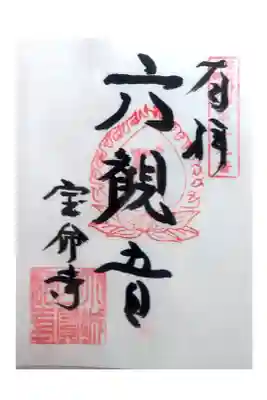 奉拝
六観音
宝命寺